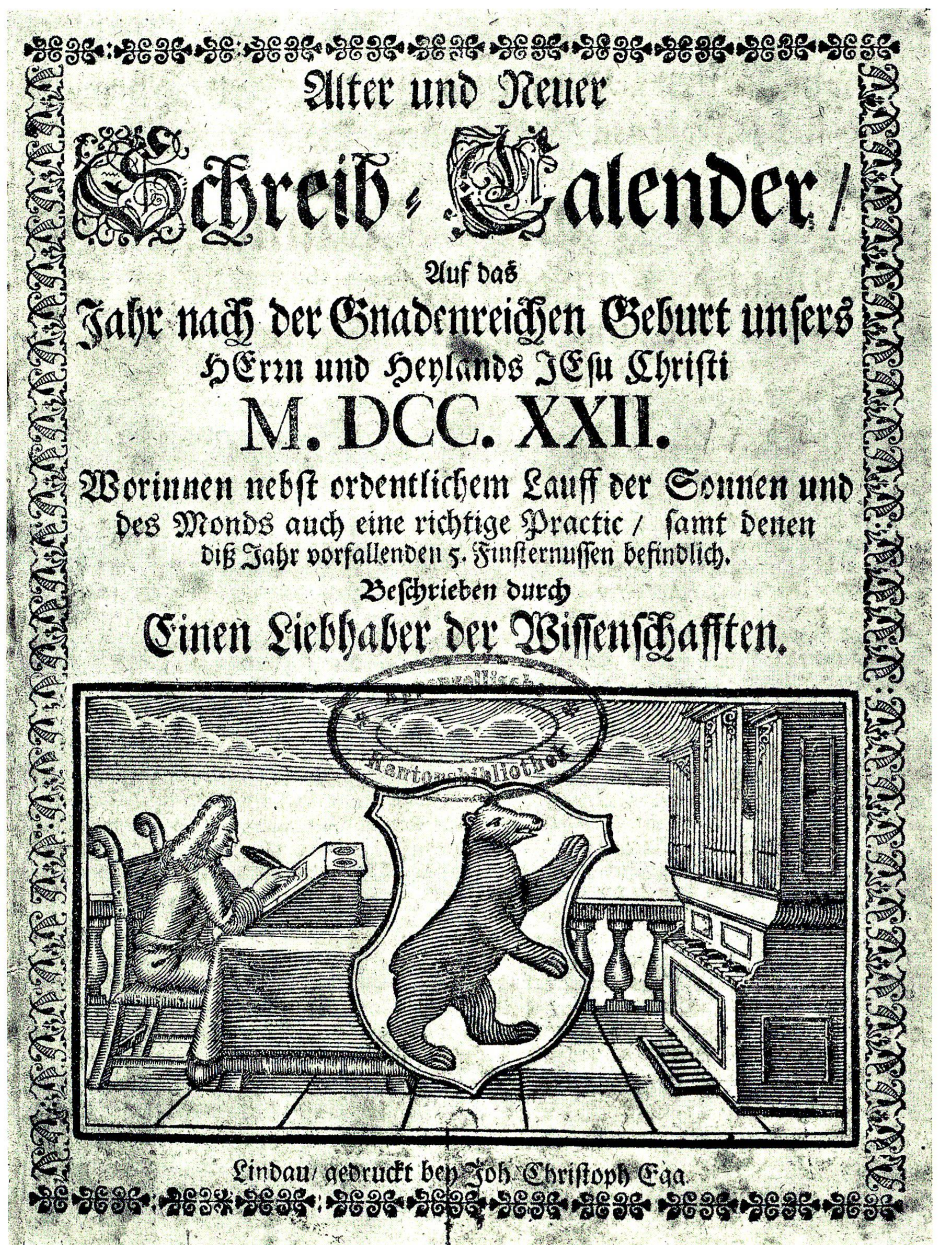 Alter und Neuer
Schreib-Calender/
Auf das
Jahr nach der Gnadenreichen Geburt unsers
HErrn und Heylands JEsu Christi
M. DCC. XXII.
Worinnen nebst ordentlichem Lauff der Sonnen und
des Monds auch eine richtige Practic / samt denen
diß Jahr vorfallenden 5. Finsternussen befindlich.
Beschrieben durch
Einen Liebhaber der Wissenschafften.
Appenzellische
Kantonsbibliothek
Lindau/ gedruckt bey Joh Christoph Egg